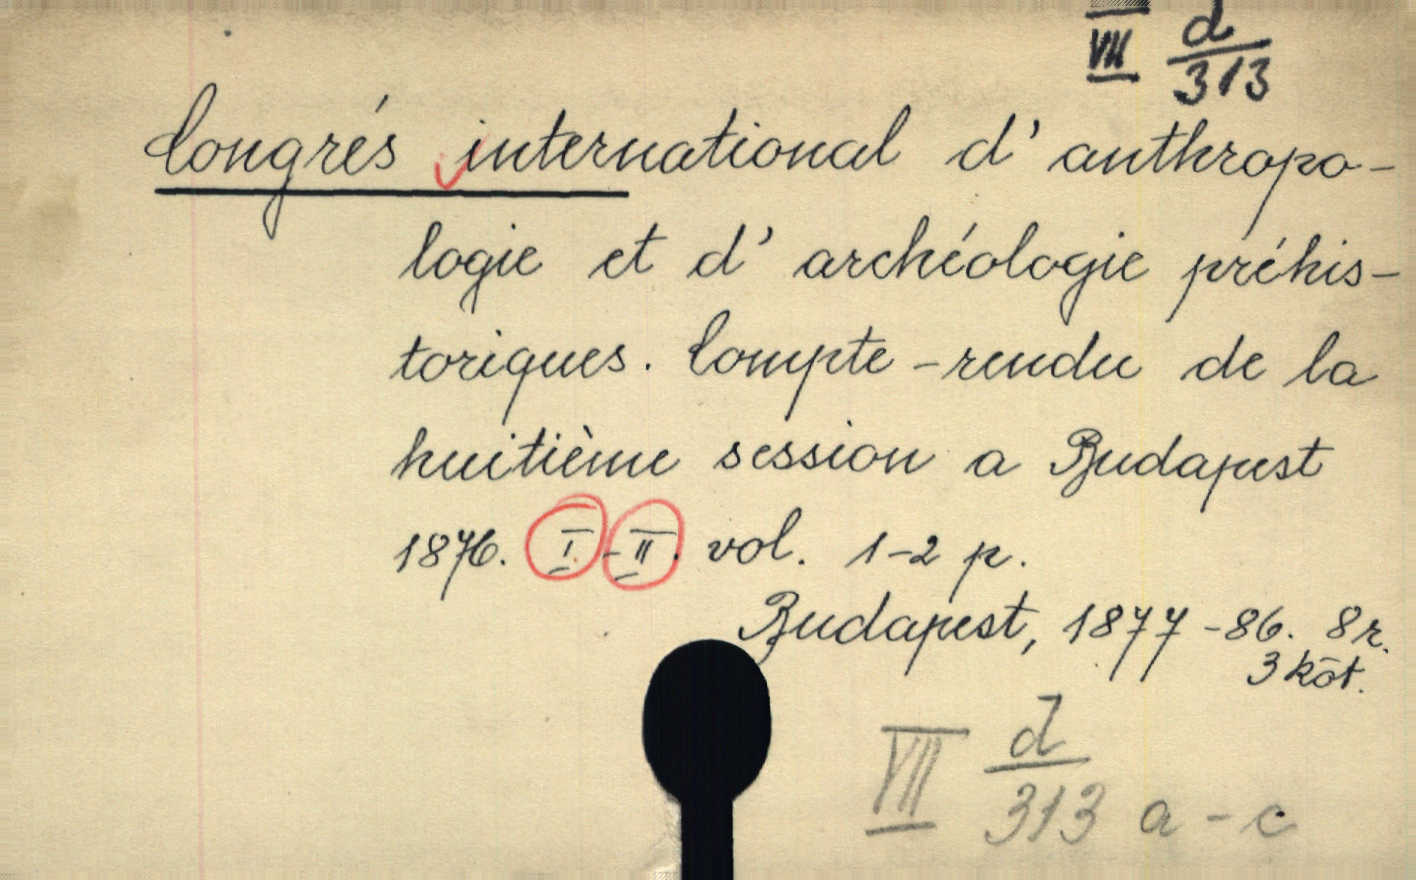 VII d/313
Congrés international d'anthropo-
logie et d'archéologie préhis-
toriques. Compte-rendu de la
huitième session a Budapest
1876. I.-II. vol. 1-2 p.
Budapest, 1877-86. 8r.
3 köt.
VII d/313 a-c